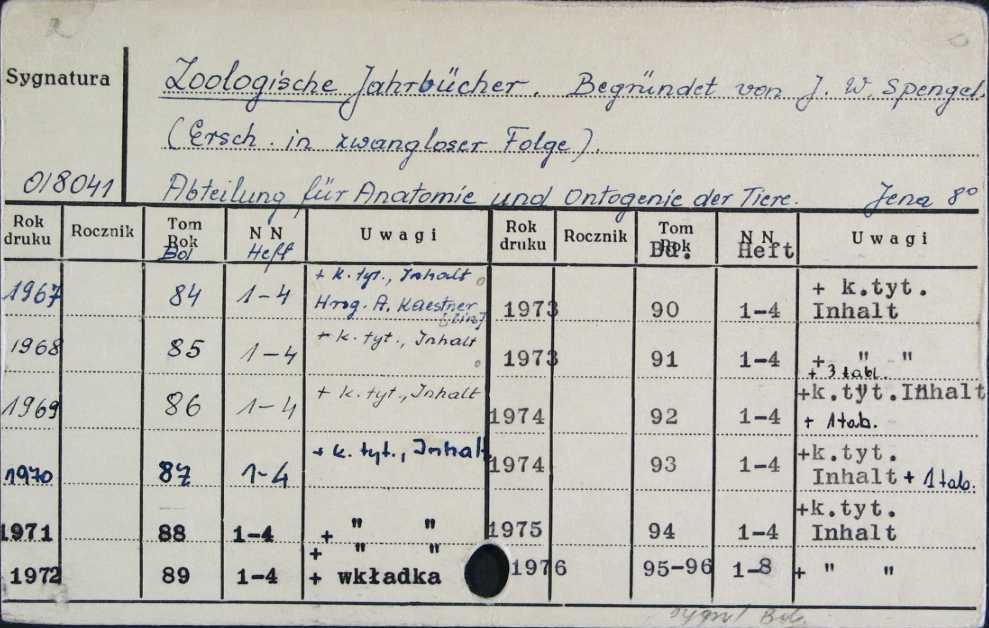 Sygnatura
Zoologische Jahrbücher. Begründet von J. W. Spengel.
(Ersch. in zwangloser Folge).
018041 Abteilung für Anatomie und Ontogenie der Tiere. Jena 8°
Rok druku Rocznik Tom Rok Bd N N Heft Uwagi Rok druku Rocznik Tom Rok Bd. N N Heft Uwagi
1967 84 1-4 + k. tyt., Inhalt
Hrsg. A. Kaestner
1968 85 1-4 + k. tyt., Inhalt
1969 86 1-4 + k. tyt., Inhalt
1970 87 1-4 + k. tyt., Inhalt
1971 88 1-4 + " "
+ " "
1972 89 1-4 + wkładka
1973 90 1-4 + k.tyt.
Inhalt
1973 91 1-4 + " "
+ 3 tabl.
1974 92 1-4 +k.tyt.Inhalt
+ 1 tab.
1974 93 1-4 +k.tyt.
Inhalt + 1 tab.
1975 94 1-4 +k.tyt.
Inhalt
1976 95-96 1-8 + " "